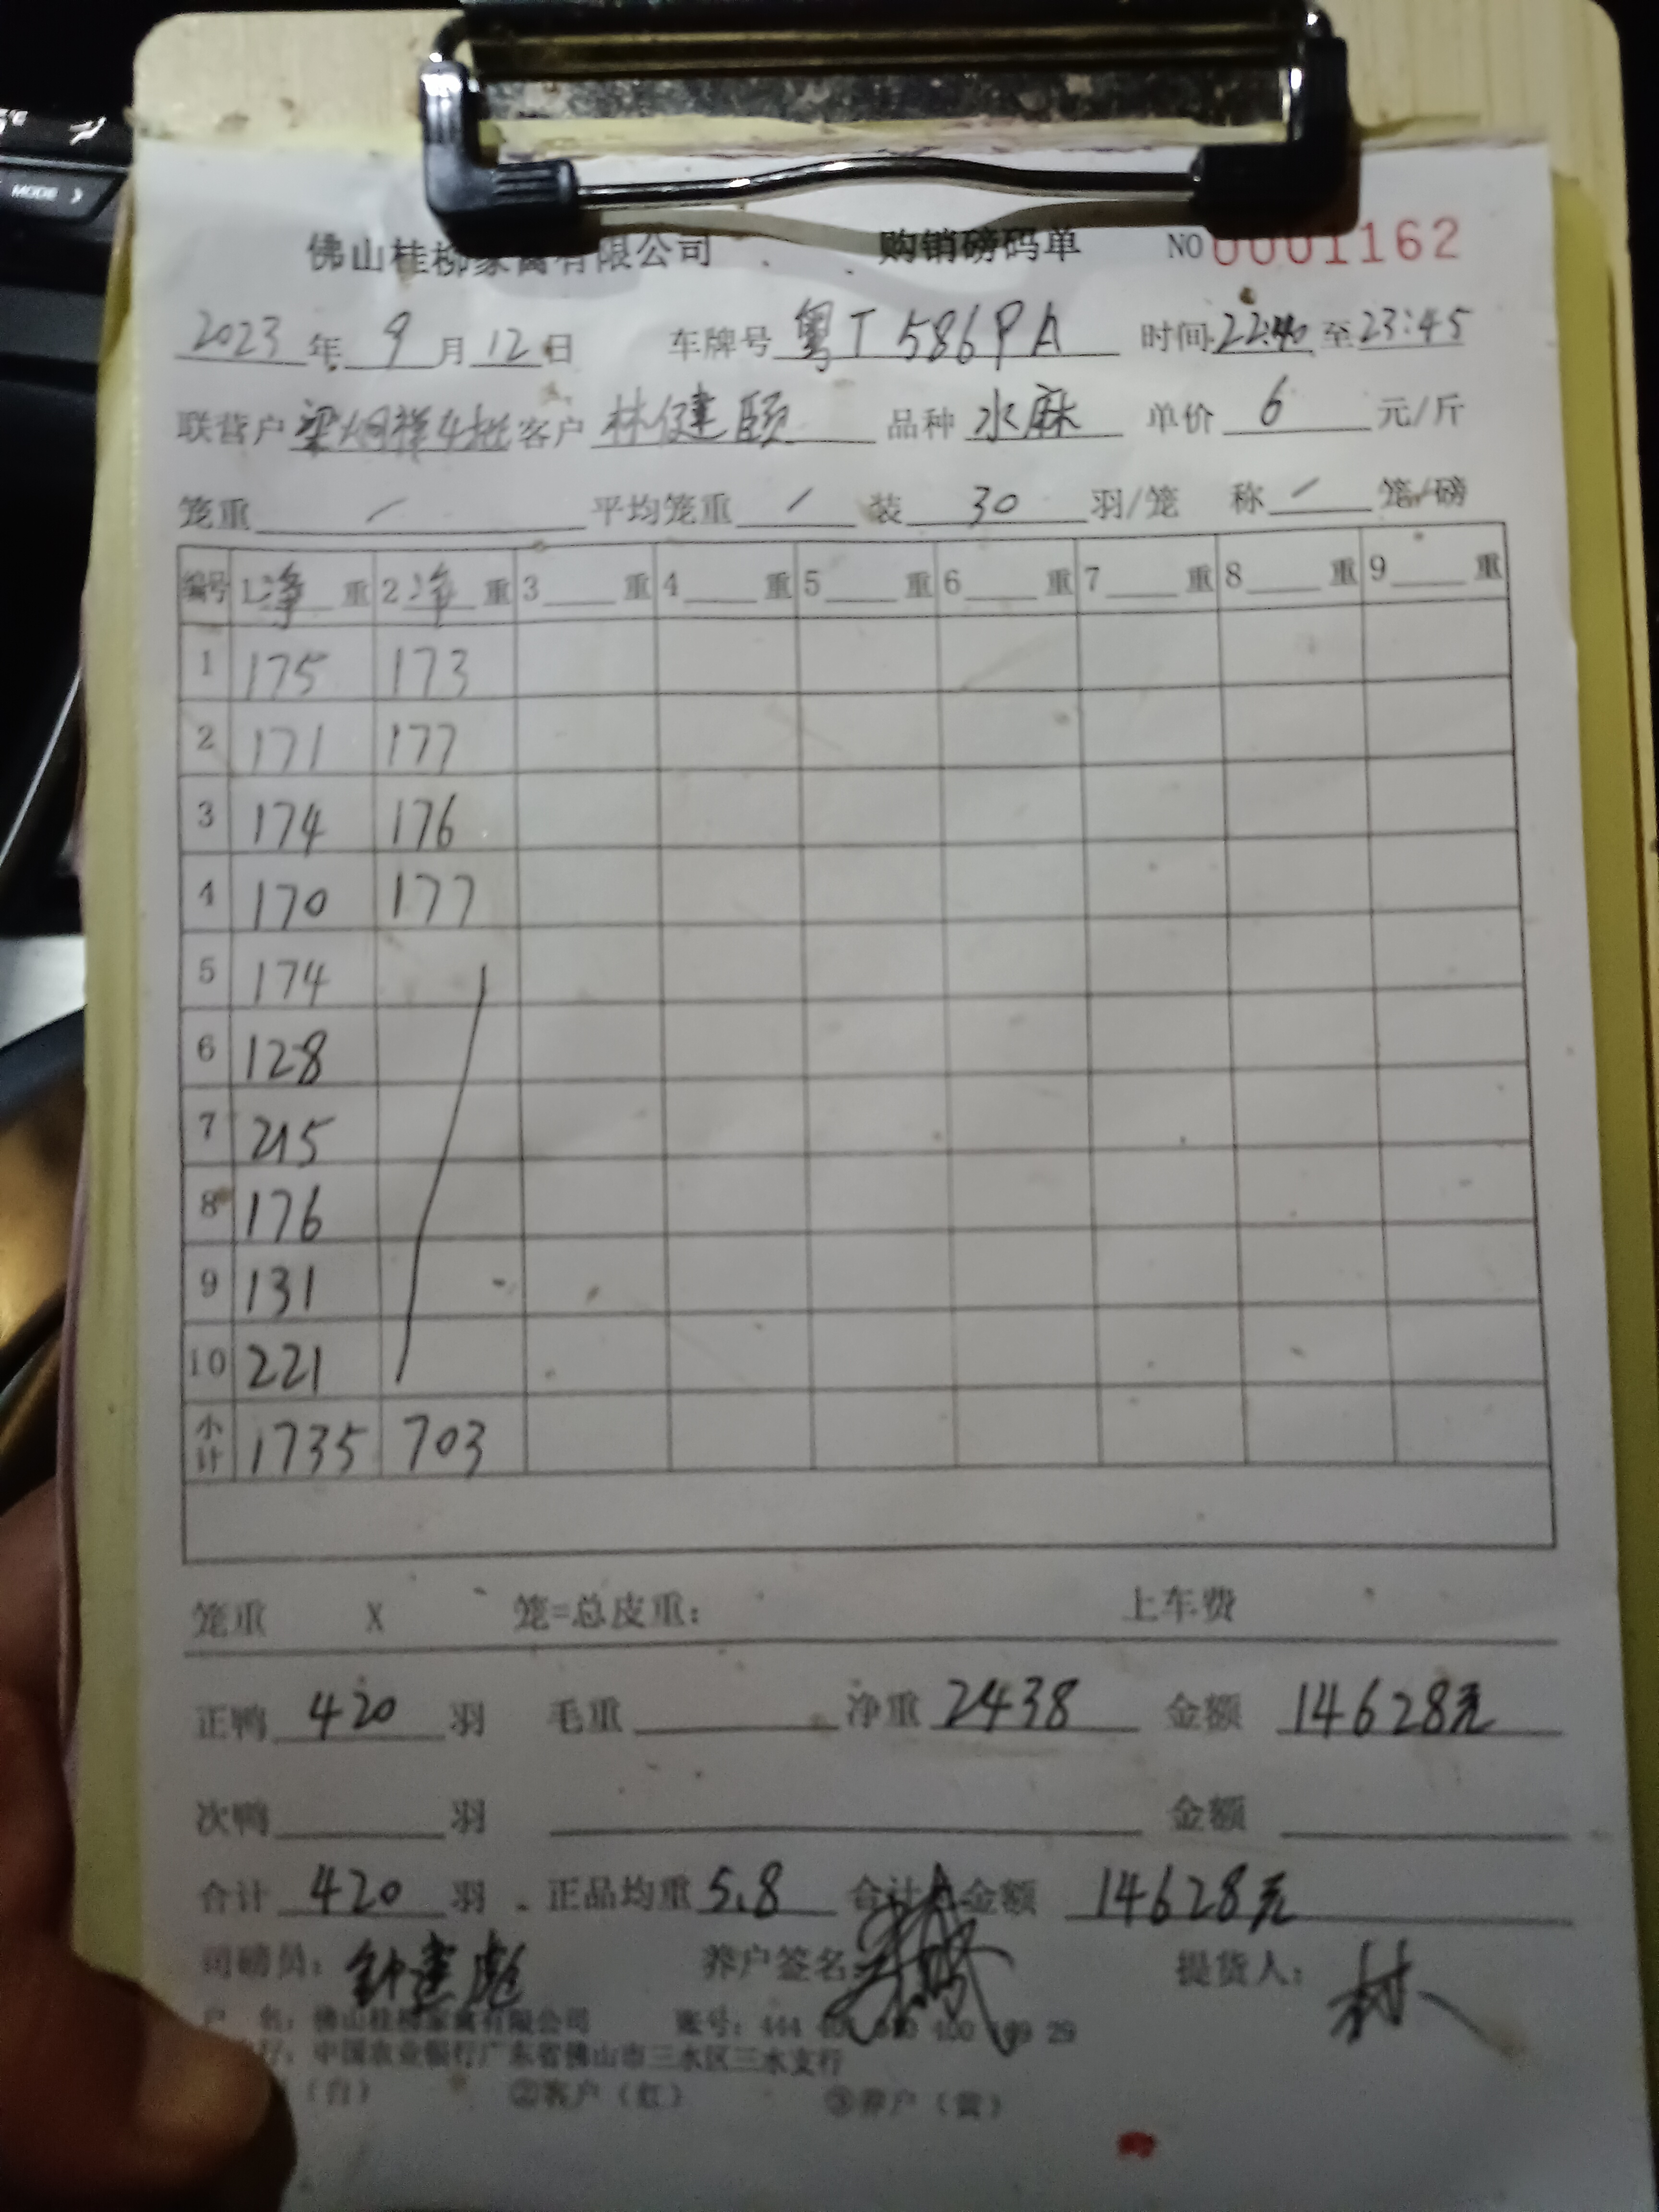 佛山桂柳家禽有限公司 购销磅码单 NO 0001162
2023年9月12日 车牌号 粤T586PA 时间22:40至23:45
联营户 梁炯祥4批 客户 林健颐 品种 水麻 单价 6 元/斤
笼重 / 平均笼重 / 装 30 羽/笼 称 / 笼/磅
编号 1净重 2净重 3 重 4 重 5 重 6 重 7 重 8 重 9 重
1 175 173
2 171 177
3 174 176
4 170 177
5 174
6 128
7 215
8 176
9 131
10 221
小计 1735 703
笼重 X 笼=总皮重: 上车费
正鸭 420 羽 毛重 净重 2438 金额 14628元
次鸭 羽 金额
合计 420 羽 正品均重 5.8 合计 金额 14628元
司磅员: 钟建彪 养户签名: 提货人: 林
户 名: 佛山桂柳家禽有限公司 账号: 444 29
行: 中国农业银行广东省佛山市三水区三水支行
(白) ②客户(红) ③养户(黄)